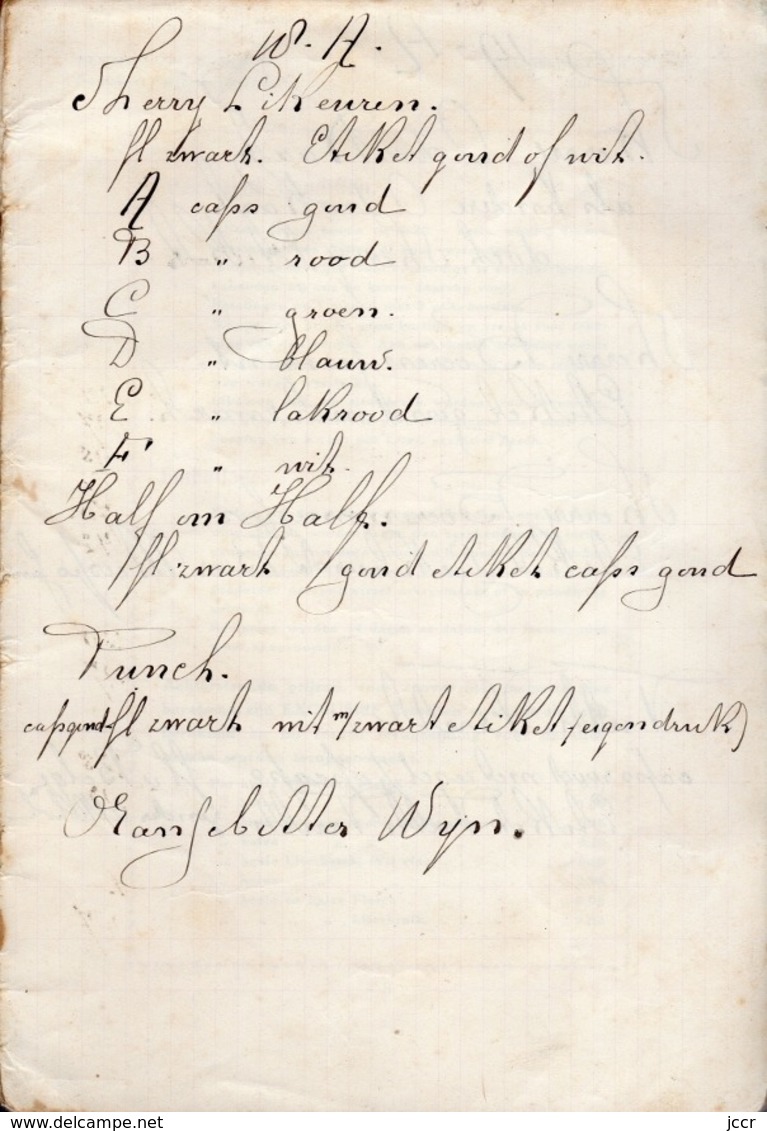 18. A.
Sherry Likeuren.
fl zwart. Etiket goud of wit.
A caps goud
B „ rood
C „ groen.
D „ blauw.
E „ lakrood
F „ wit.
Half om Half.
fl zwart goud etiket caps goud
Punch.
caps goud fl zwart wit m/zwart etiket (eigendruk)
Oranjebitter Wyn.
jccr